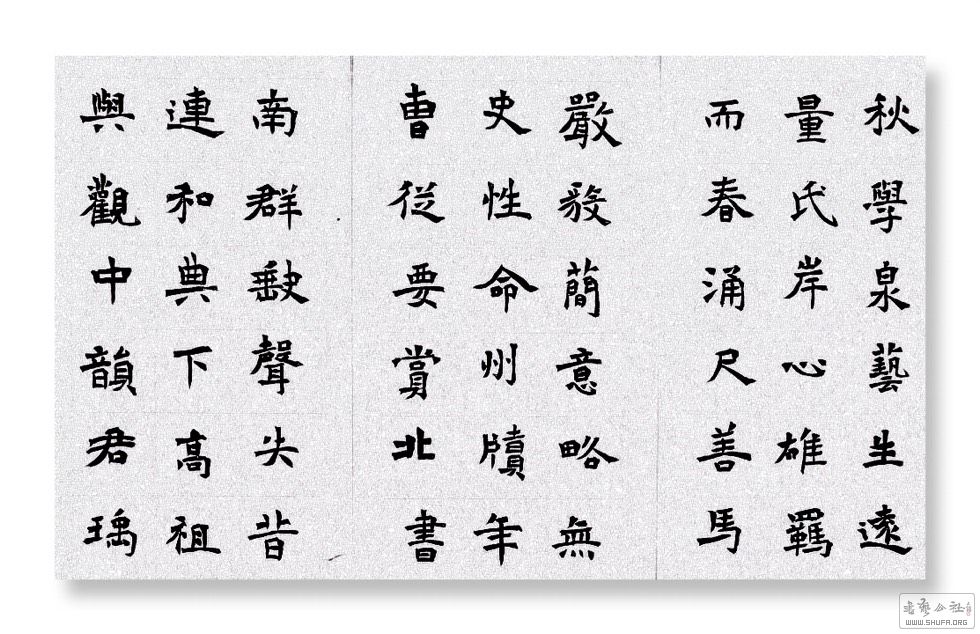 秋學泉藝生遠
量氏岸心雄羈
而春涌尺善馬
嚴發簡意略無
史性命州牘年
曹從要賞北書
南群聲尖昔
連和典下高祖
與觀中韻君瑀
WWW.SHUFA.ORG